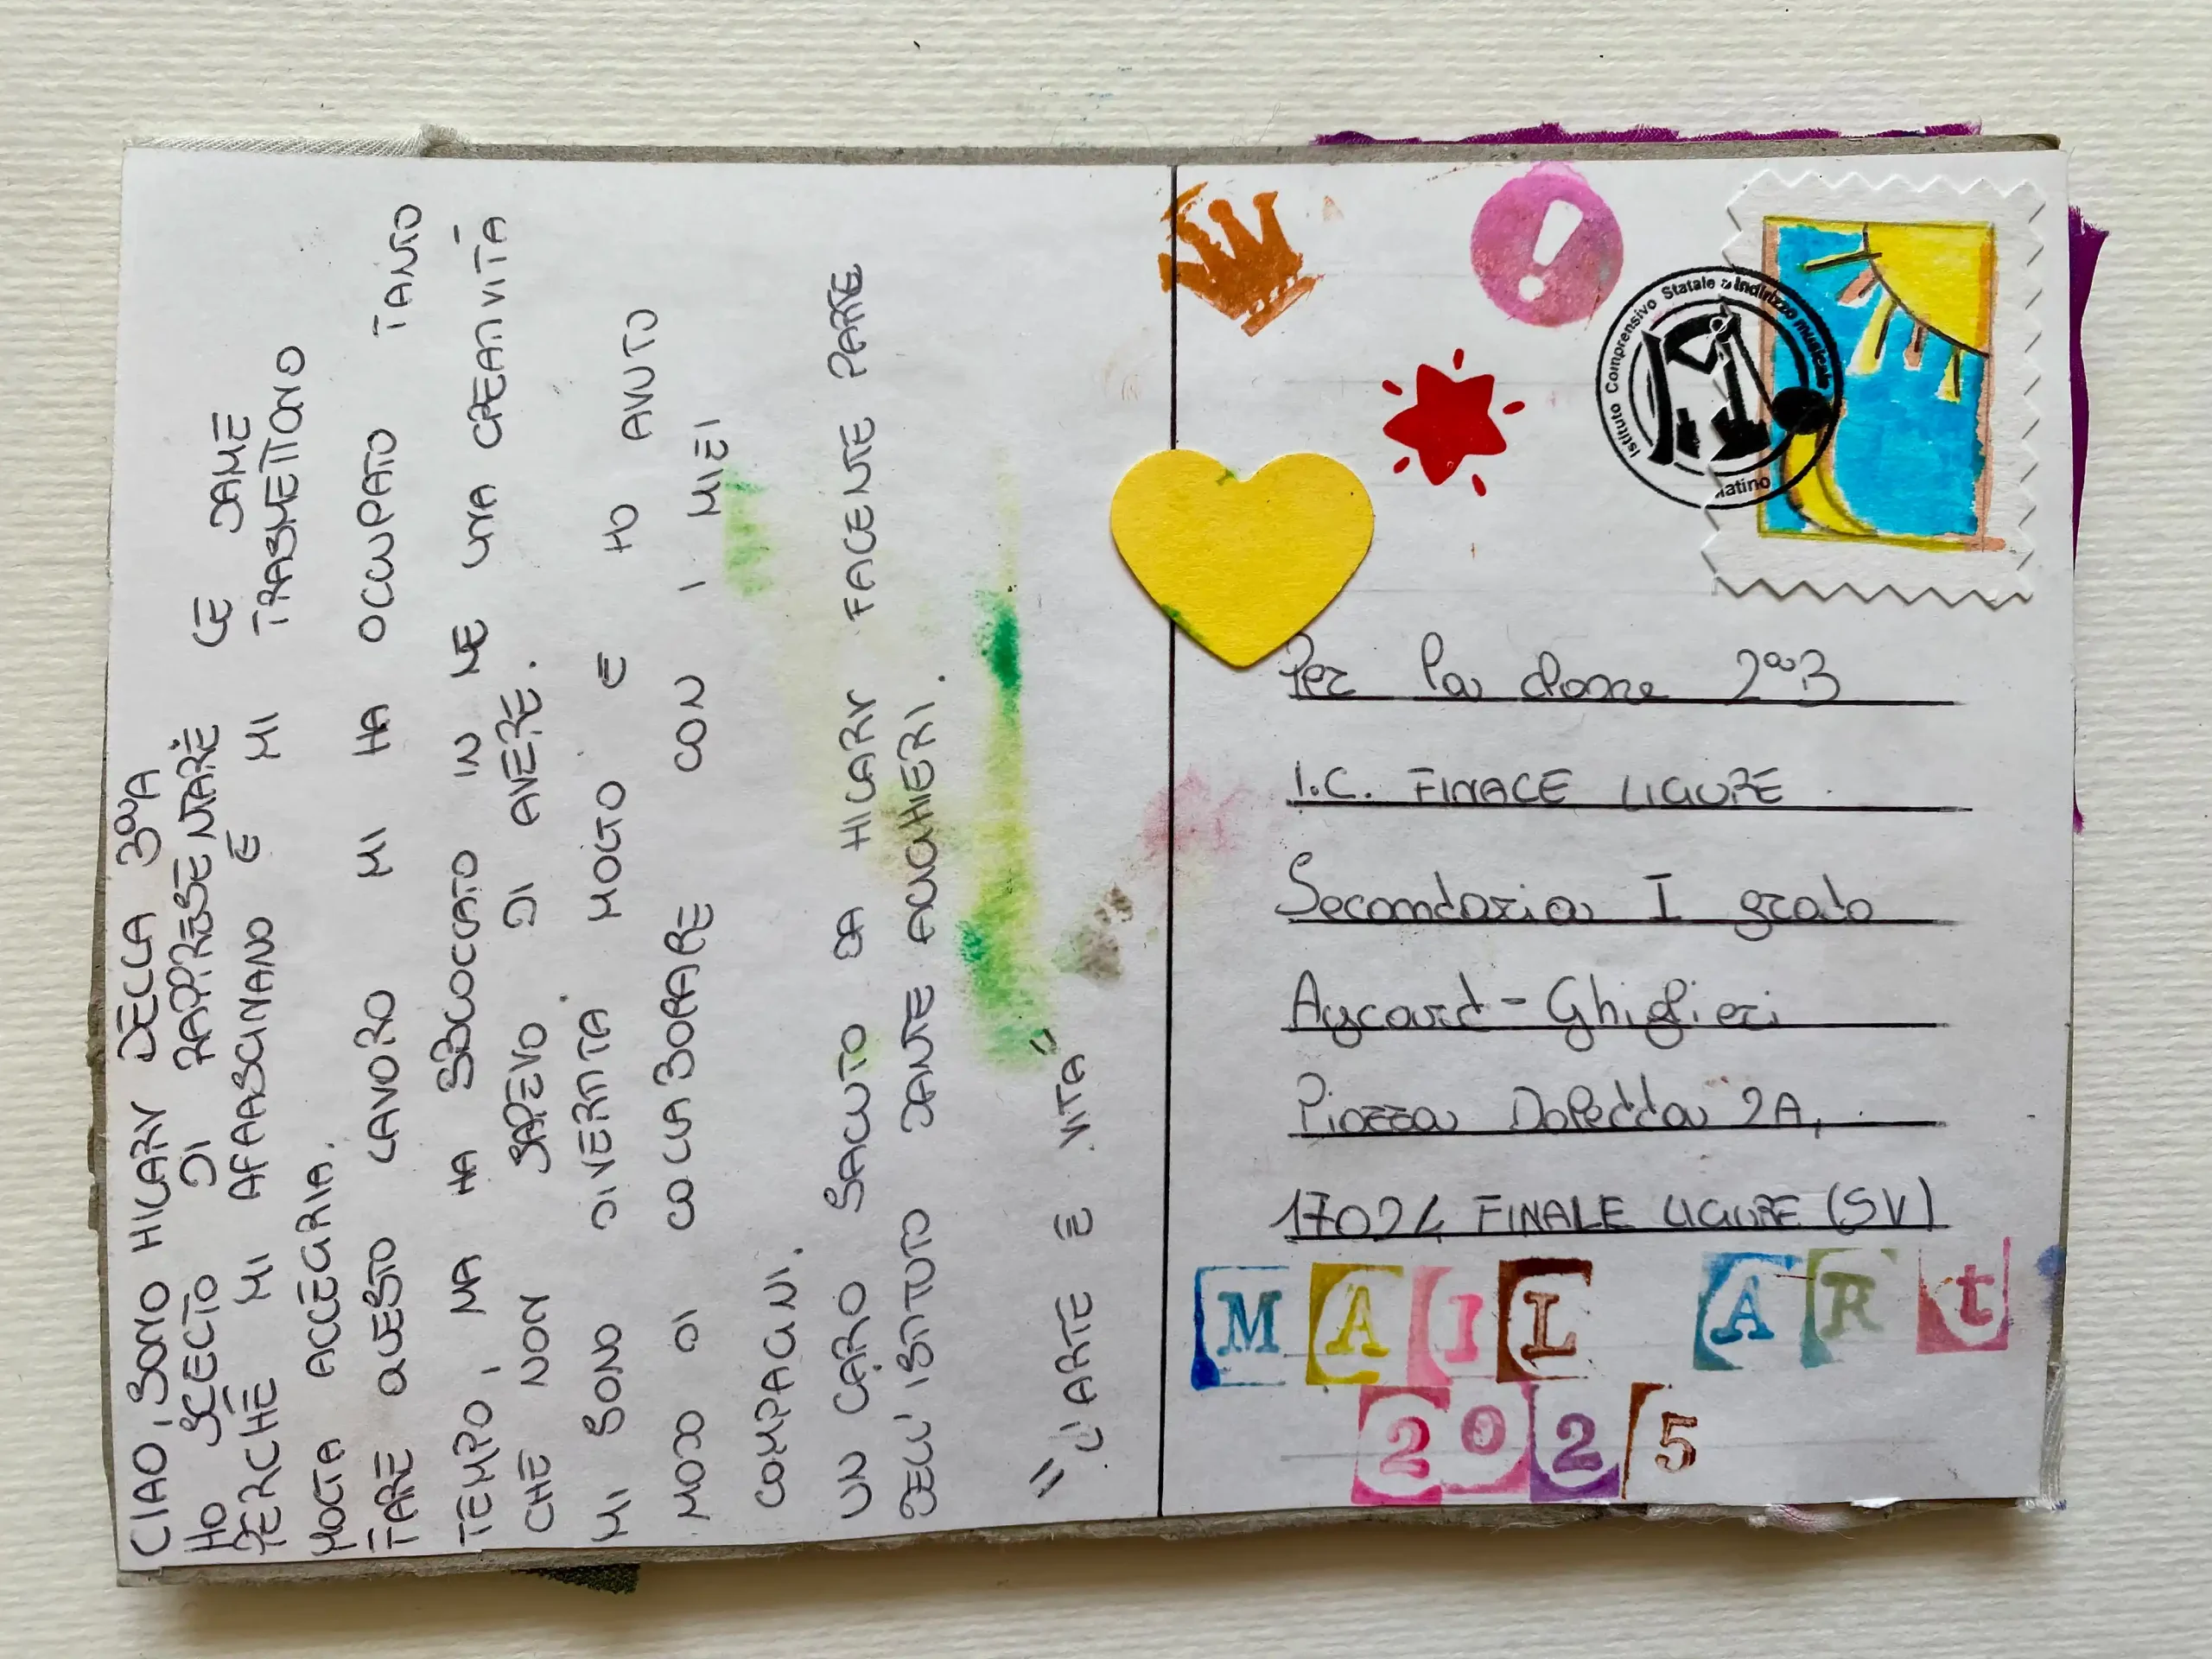 CIAO, SONO HILARY DELLA 3ªA
HO SCELTO DI RAPPRESENTARE LE DAME
PERCHÈ MI AFFASCINANO E MI TRASMETTONO
MOLTA ALLEGRIA.
FARE QUESTO LAVORO MI HA OCCUPATO TANTO
TEMPO, MA HA SBLOCCATO IN ME UNA CREATIVITÀ
CHE NON SAPEVO DI AVERE.
MI SONO DIVERTITA MOLTO E HO AVUTO
MODO DI COLLABORARE CON I MIEI
COMPAGNI.
UN CARO SALUTO DA HILARY FACENTE PARTE
DELL'ISTITUTO DANTE ALIGHIERI.
"L'ARTE È VITA"
Istituto Comprensivo Statale a Indirizzo musicale
Matino
Per la classe 2ªB
I.C. FINALE LIGURE
Secondaria I grado
Aycard-Ghiglieri
Piazza Doletta 2A,
17024 FINALE LIGURE (SV)
MAIL ARt
2025